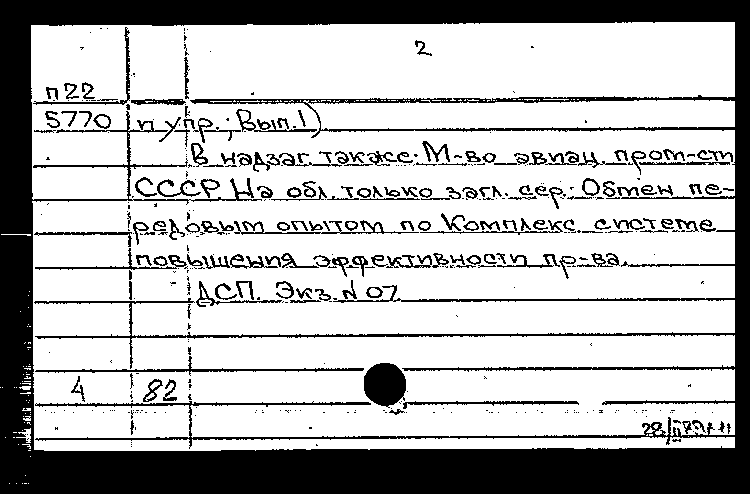 2
п22
5770 п упр.; Вып. 1)
В надзаг. также: М-во авиац. пром-сти
СССР. На обл. только загл. сер.: Обмен пе-
редовым опытом по Комплекс. системе
повышения эффективности пр-ва.
ДСП. Экз. N 07
4 82
28/II